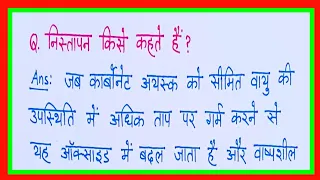 Q. निस्तापन किसे कहते हैं ?
Ans: जब कार्बोनेट अयस्क को सीमित वायु की
उपस्थिति में अधिक ताप पर गर्म करने से
यह ऑक्साइड में बदल जाता है और वाष्पशील